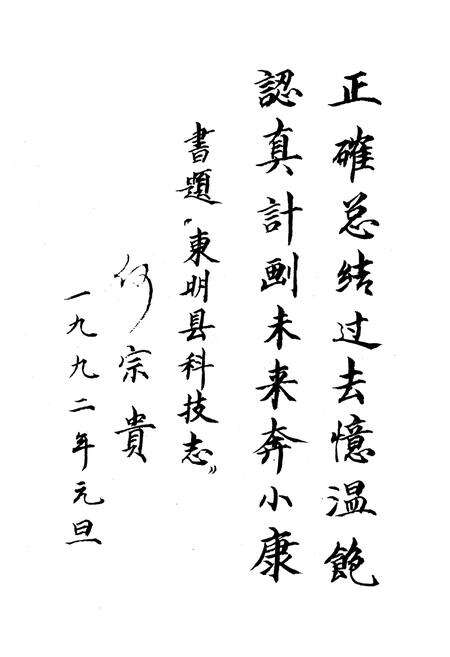 正確总结过去憶温飽
認真計劃未来奔小康
書題“東明县科技志”
何宗貴
一九九二年元旦